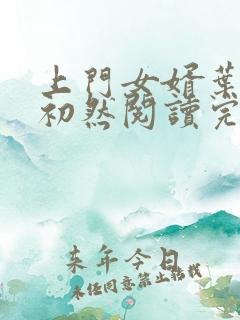 上門女婿葉
初然閱讀完
來年今日
未经同意禁止转载